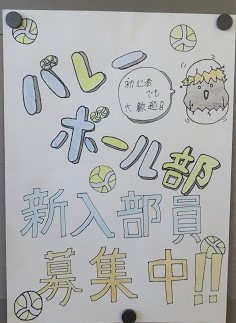 バレー
ボール部
初心者
でも
大歓迎!!
新入部員
募集中!!